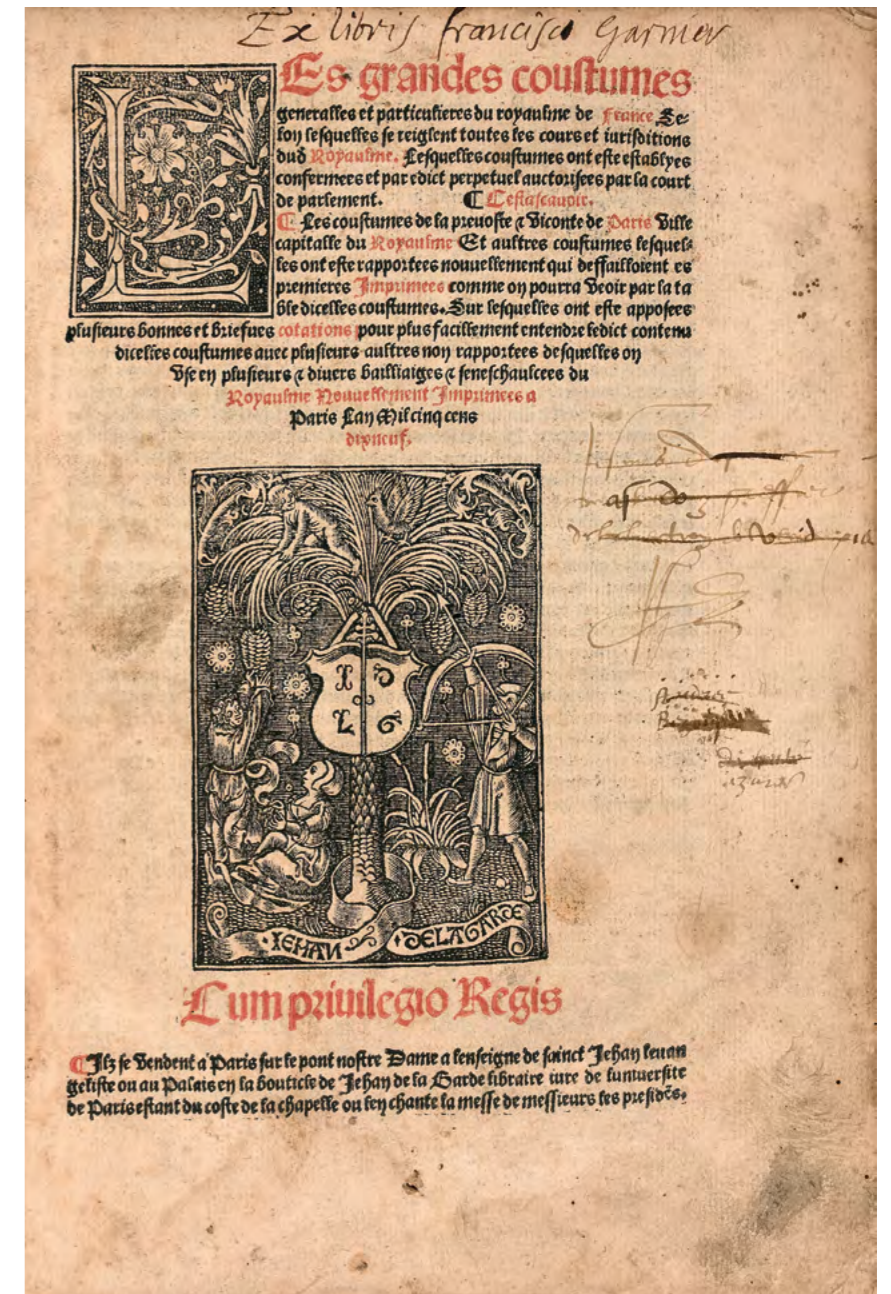 Ex libris francisci Garnier
LEs grandes coustumes
generalles et particulieres du royaulme de France Se-
lon lesquelles se reiglent toutes les cours et iurisditions
dud Royaulme. Lesquelles coustumes ont este establyes
confermees et par edict perpetuel auctorisees par la court
de parlement. ¶ Cestascauoir.
¶ Les coustumes de la preuoste & viconte de Paris ville
capitalle du Royaulme Et aultres coustumes lesquel-
les ont este rapportees nouuellement qui deffailloient es
premieres Imprimees comme on pourra veoir par la ta
ble dicelles coustumes. Sur lesquelles ont este apposees
plusieurs bonnes et briefues cotations pour plus facillement entendre ledict contenu
dicelles coustumes auec plusieurs aultres non rapportees desquelles on
vse en plusieurs & diuers bailliaiges & seneschaulcees du
Royaulme Nouuellement Imprimees a
Paris Lan Mil cinq cens
dixneuf.
I D
L G
IEHAN DELAGARDE
Cum priuilegio Regis
¶ Ilz se vendent a Paris sur le pont nostre Dame a lenseigne de sainct Jehan leuan
geliste ou au Palais en la bouticle de Jehan de la Garde libraire iure de luniuersite
de Paris estant du coste de la chapelle ou len chante la messe de messieurs les presidẽs.